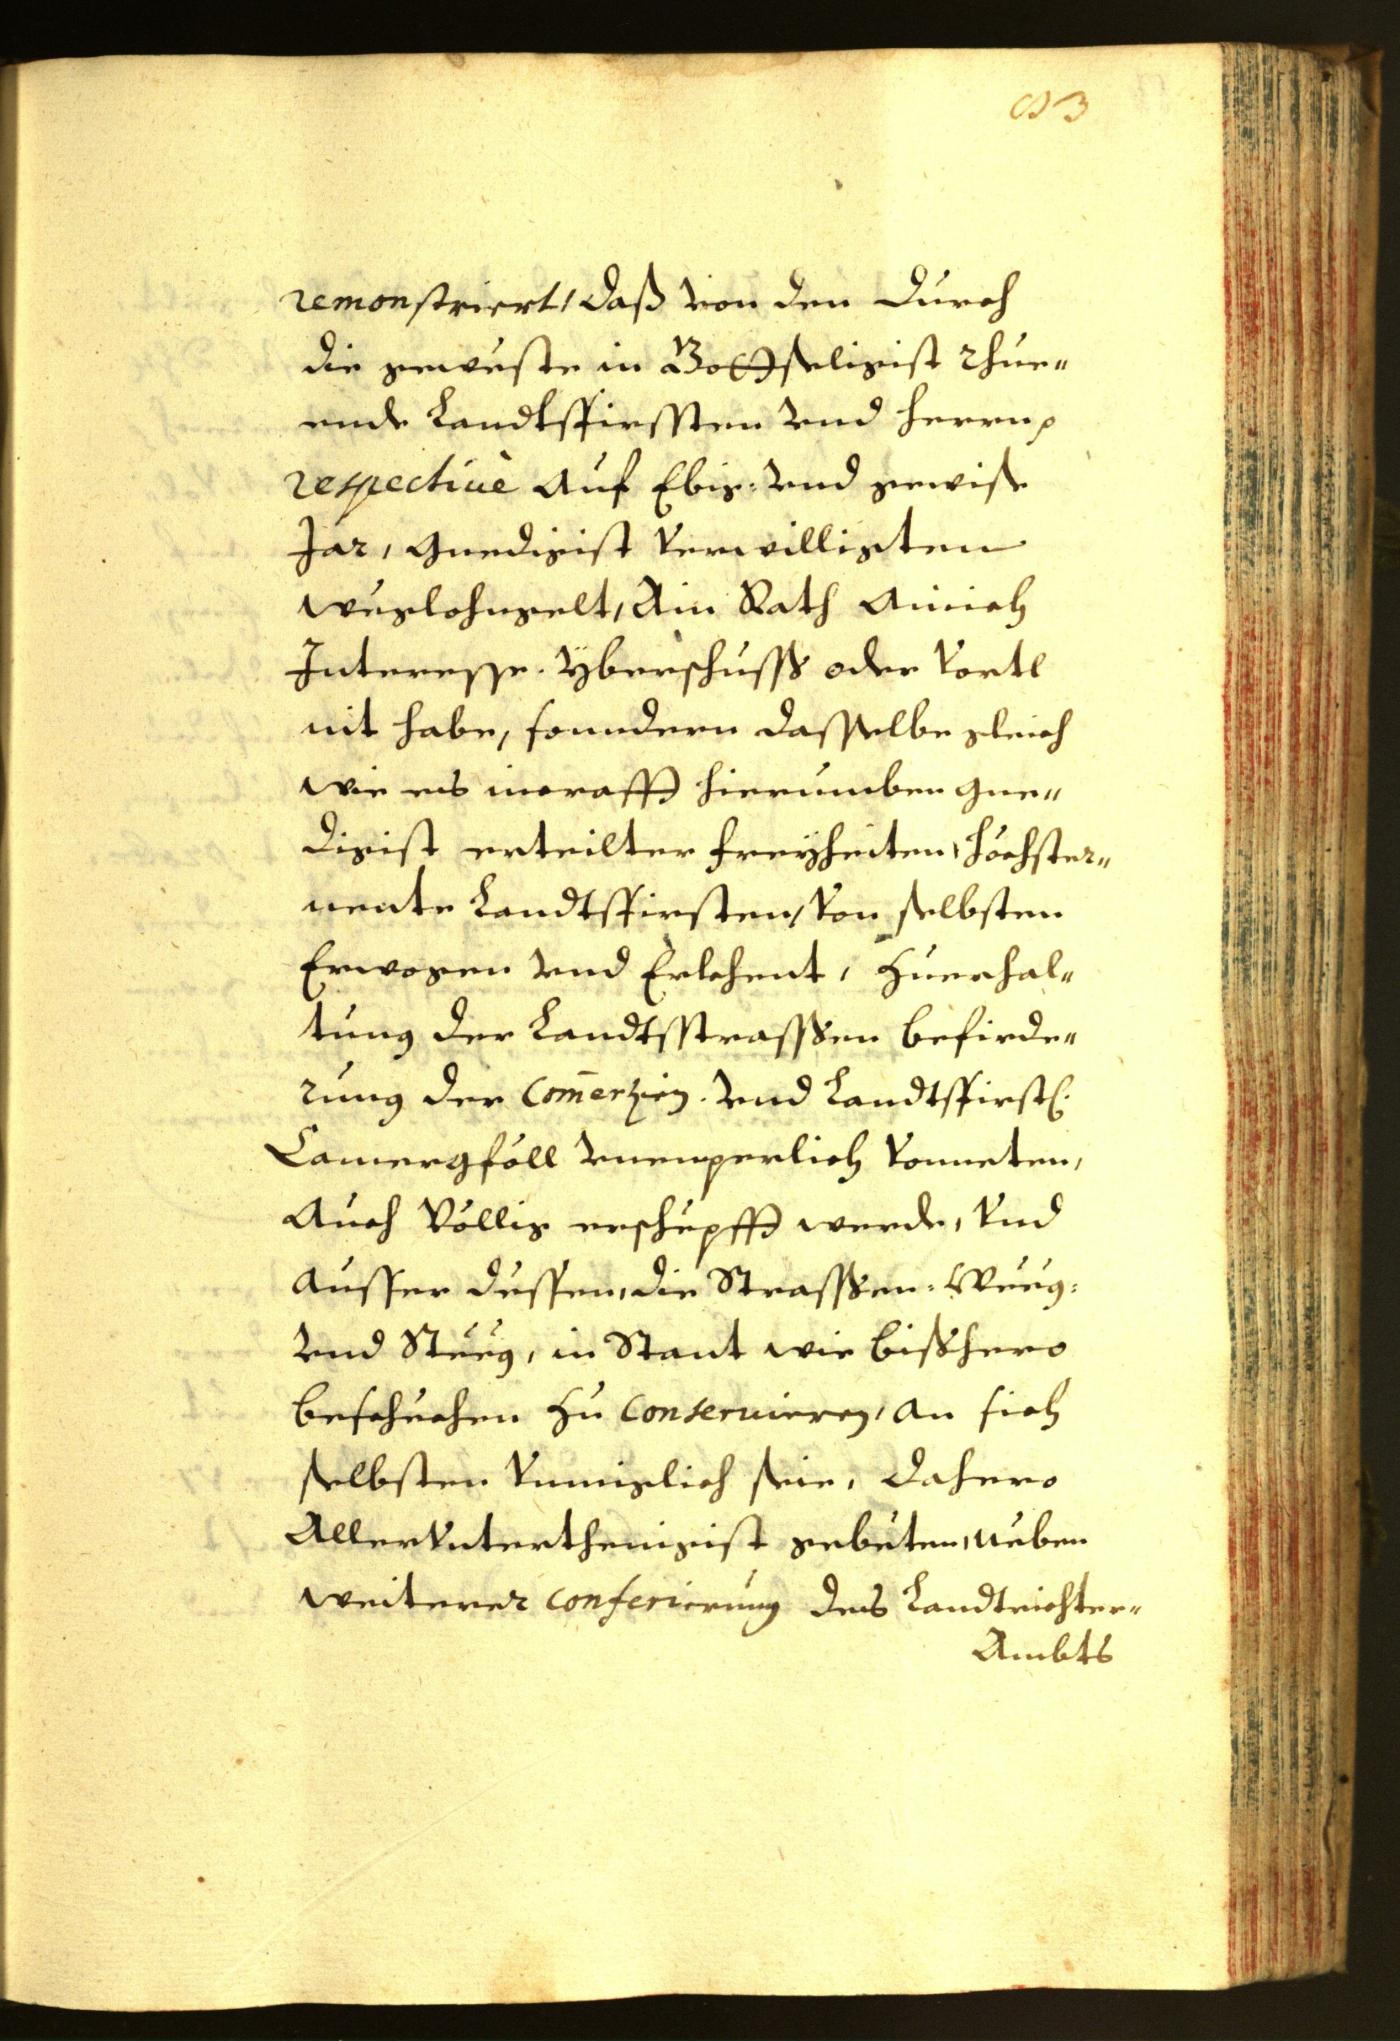 83
remonstriert, daß von den Durch
die geweste in Gottseligist rhue„
ende Landtsfirsten vnd herrn
respectiuè Auf Ebig: vnd gewise
Jar, gnedigist verwilligten
weglohngelt, Ain Rath Ainich
Interesse. yberschuss oder Vortl
nit habe, sonndern dasselbe gleich
wie es in crafft hierumben gne„
digist erteilter freyheiten, höchster„
nente Landtsfirsten, von selbsten
Erwogen vnd Erkhent, Zuerhal„
tung der Landtsstrassen befirde„
rung der Comerzien. vnd Landtsfirstl:
Camergföll vnenperlich vonneten,
Auch völlig erschepfft werde, vnd
ausser dessen, die Strassen: Weeg:
vnd Steeg, in Stant wie bisshero
beschechen zu Conseruieren, an sich
selbsten vnmiglich seie, dahero
Allervnterthenigist gebeten, neben
weiterer conferierung des Landtrichter„
Ambts